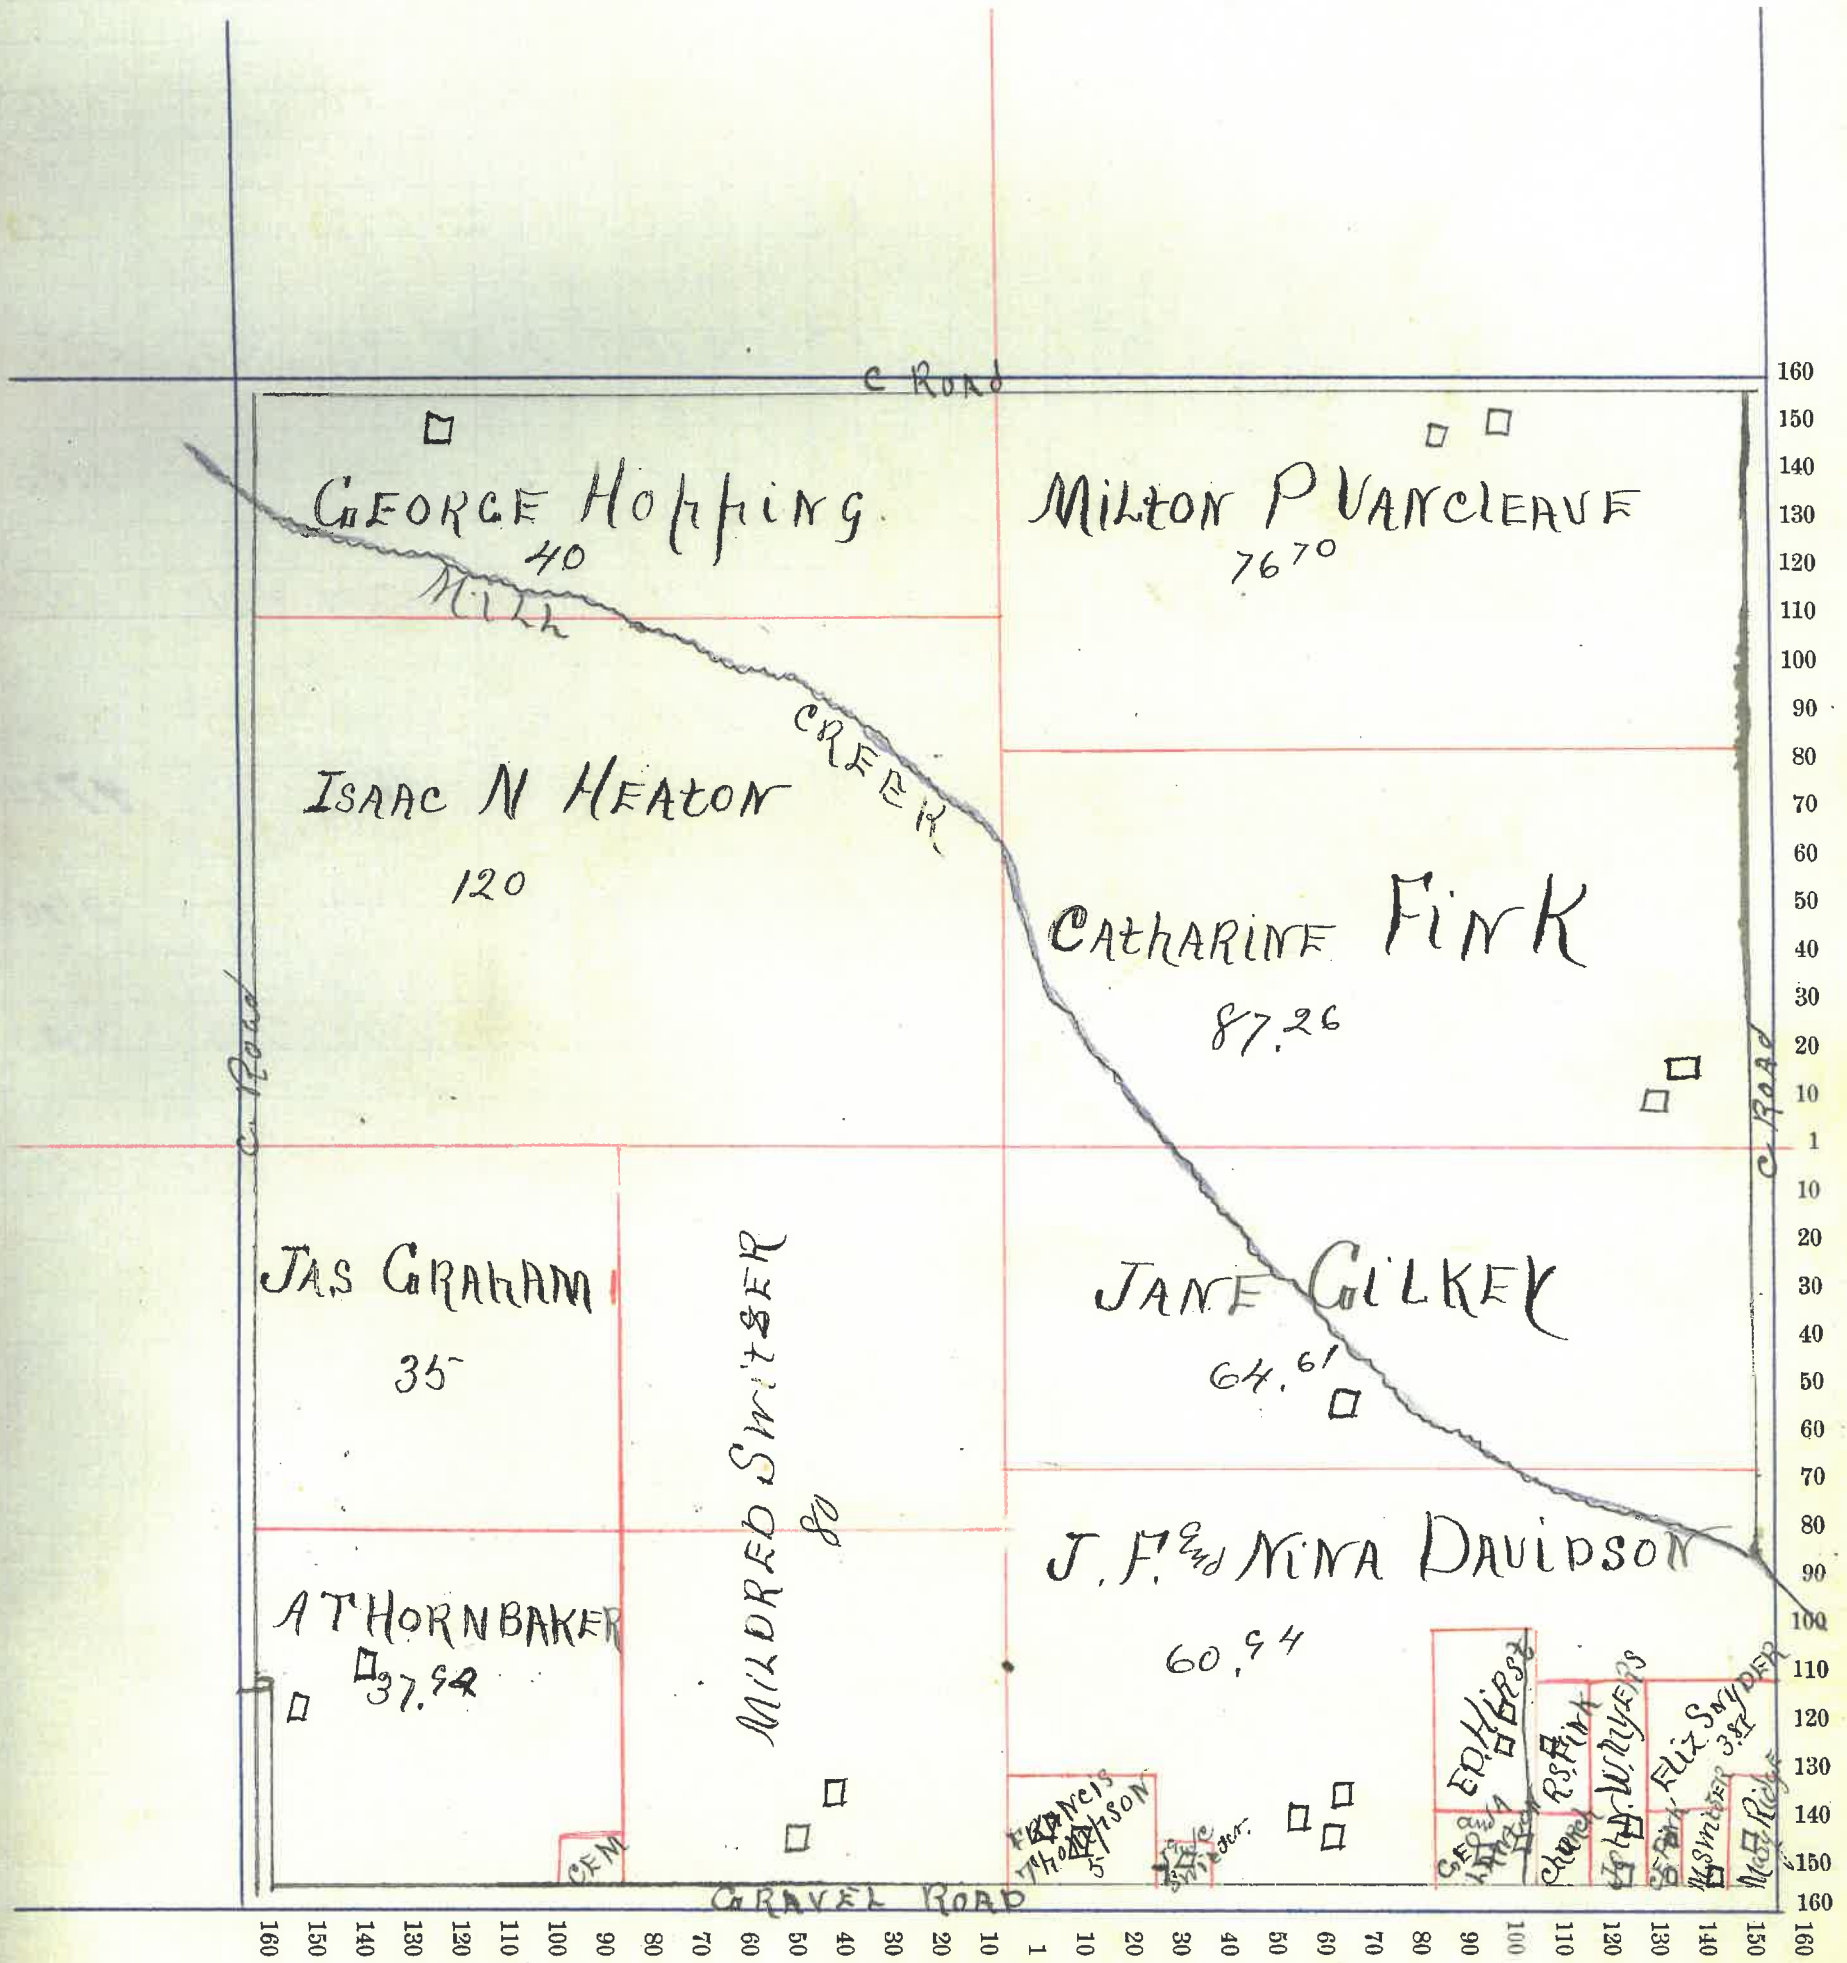 C ROAD
GEORGE HOPPING
40
MILTON P VANCLEAVE
76 70
MILL
CREEK
ISAAC N HEATON
120
CATHARINE FINK
87.26
C ROAD
C ROAD
JAS GRAHAM
35
MILDRED SWITSER
80
JANE GILKEY
64.61
A THORNBAKER
37.94
J. F. and NINA DAVIDSON
60.94
CEM
FRANCIS
THOMPSON
5
ED. HIRST
RS. FINK
Church
John W. MYERS
ELIZ SNYDER
3.81
Mary Ridge
GRAVEL ROAD
160
150
140
130
120
110
100
90
80
70
60
50
40
30
20
10
1
10
20
30
40
50
60
70
80
90
100
110
120
130
140
150
160
160 150 140 130 120 110 100 90 80 70 60 50 40 30 20 10 1 10 20 30 40 50 60 70 80 90 100 110 120 130 140 150 160